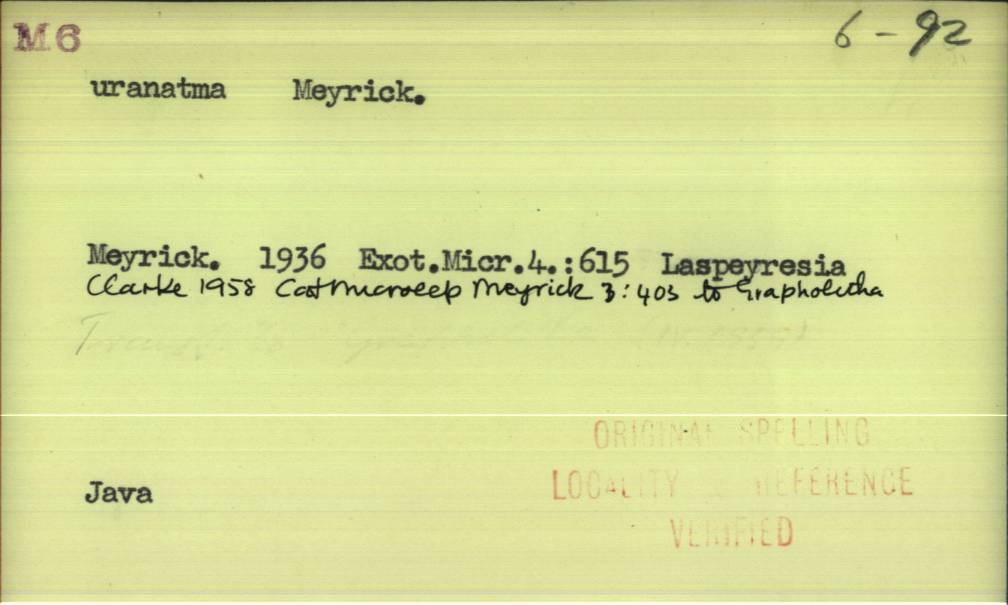 M6
6-92
uranatma Meyrick.
Meyrick. 1936 Exot.Micr.4.:615 Laspeyresia
Clarke 1958 Cat Microlep Meyrick 3:403 to Grapholitha
ORIGINAL SPELLING
LOCALITY & REFERENCE
VERIFIED
Java